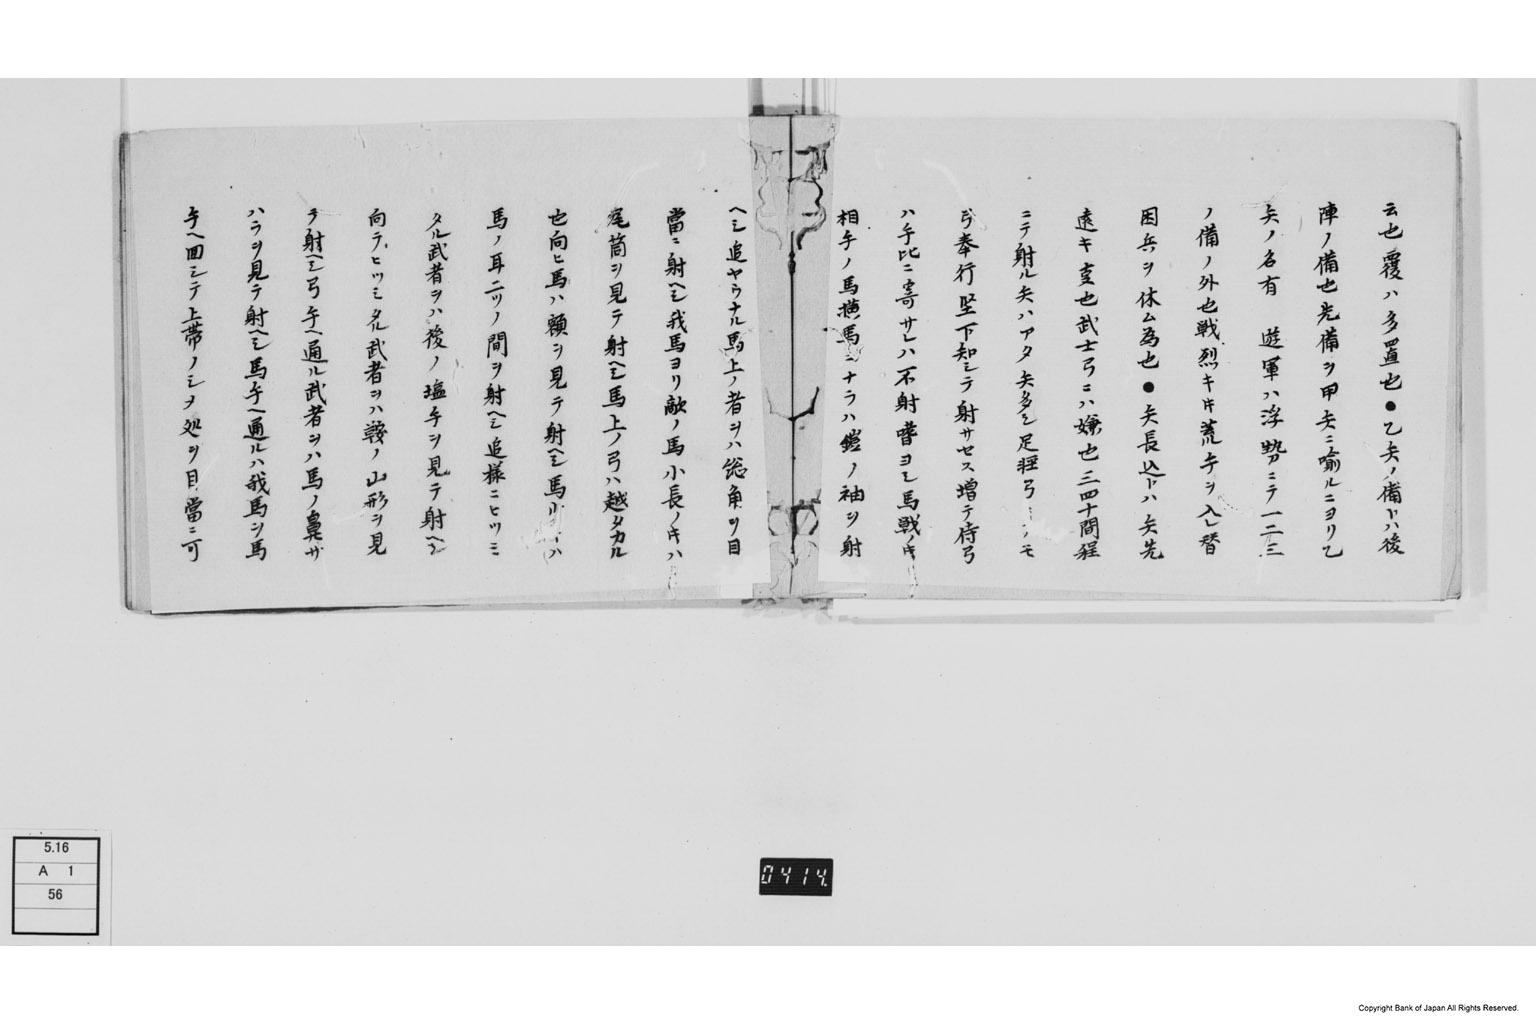 云也覆ハ多置也●乙矢ノ備トハ後
陣ノ備也先備ヲ甲矢ニ喩ルニヨリ乙
矢ノ名有 遊軍ハ浮勢ニテ一二三
ノ備ノ外也戦烈キ𪜈荒手ヲ入レ替
困兵ヲ休ム為也●矢長込トハ矢先
遠キ支也武士弓ニハ嫌也三四十間程
ニテ射ル矢ハアタ矢多シ足軽弓ニノモ
弓奉行堅下知シテ射サセス増テ侍弓
ハ手比ニ寄サレハ不射嗜ヨシ馬戦ノ𪜈
相手ノ馬横馬ニナラハ鎧ノ袖ヲ射
ヘシ追ヤウナル馬上ノ者ヲハ総角ヲ目
當ニ射ヘシ我馬ヨリ敵ノ馬小長ノ𪜈ハ
尾筒ヲ見テ射ヘシ馬上ノ弓ハ越タカル
也向ヒ馬ハ額ヲ見テ射ヘシ馬ハ
馬ノ耳二ツノ間ヲ射ヘシ追様ニヒツミ
タル武者ヲハ後ノ塩手ヲ見テ射ヘシ
向テヒツミタル武者ヲハ鞍ノ山形ヲ見
テ射ヘシ弓手ヘ通ル武者ヲハ馬ノ鼻サ
ハラヲ見テ射ヘシ馬手ヘ通ルハ我馬ヲ馬
手ヘ回シテ上帯ノシヲ処ヲ目當ニ可
5.16
A 1
56
0414.
Copyright Bank of Japan All Rights Reserved.